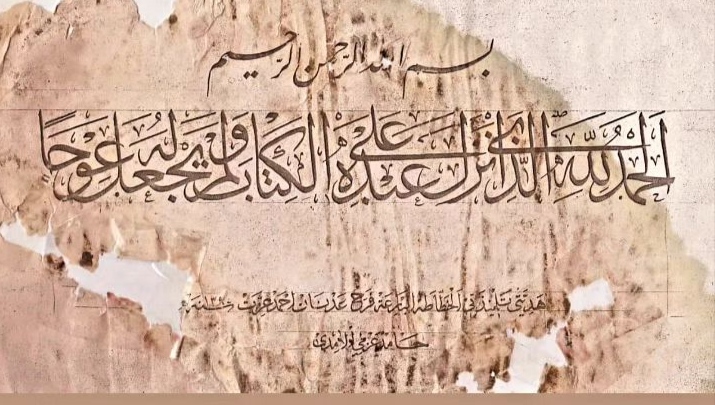 بسم الله الرحمن الرحيم
الحمد لله الذي انزل على عبده الكتاب ولم يجعل له عوجا
تلميذتي الخطاطة البارعة فرح عدنان احمد عزت
حامد